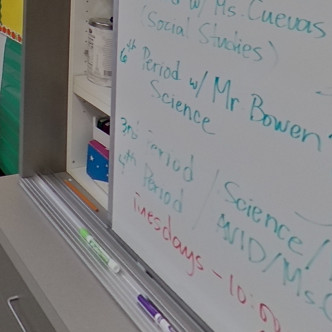 w/ Ms. Cuevas
(Social Studies)
6th Period w/ Mr Bowen
Science
3rd Period / Science/
4th Period / AVID/Ms.
Tuesdays - 10:0